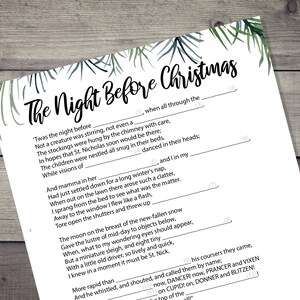 The Night Before Christmas
'Twas the night before ________, when all through the ________
Not a creature was stirring, not even a ________
The stockings were hung by the chimney with care,
In hopes that St. Nicholas soon would be there;
The children were nestled all snug in their beds,
While visions of ________ danced in their heads;
And mamma in her ________, and I in my ________
Had just settled down for a long winter's nap,
When out on the lawn there arose such a clatter,
I sprang from the bed to see what was the matter.
Away to the window I flew like a flash,
Tore open the shutters and threw up ________
The moon on the breast of the new-fallen snow
Gave the lustre of mid-day to objects below,
When, what to my wondering eyes should appear,
But a miniature sleigh, and eight tiny ________
With a little old driver, so lively and quick,
I knew in a moment it must be St. Nick.
More rapid than ________ his coursers they came,
And he whistled, and shouted, and called them by name;
________, DANCER! now, PRANCER and VIXEN
________ on CUPID! on, DONNER and BLITZEN!
top of the